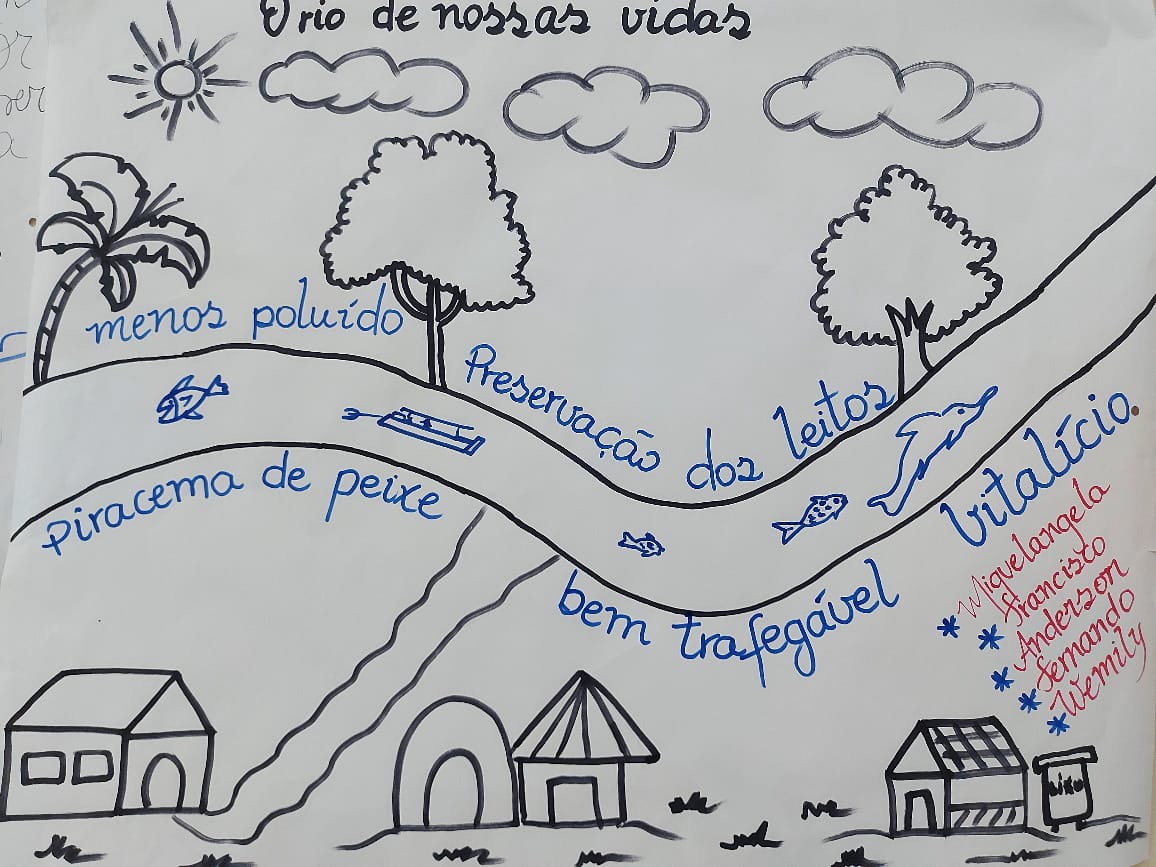 O rio de nossas vidas
menos poluído
Preservação dos leitos
piracema de peixe
bem trafegável
vitalício.
* Miquelangela
* Francisco
* Anderson
* Fernando
* Wemily
LIXO